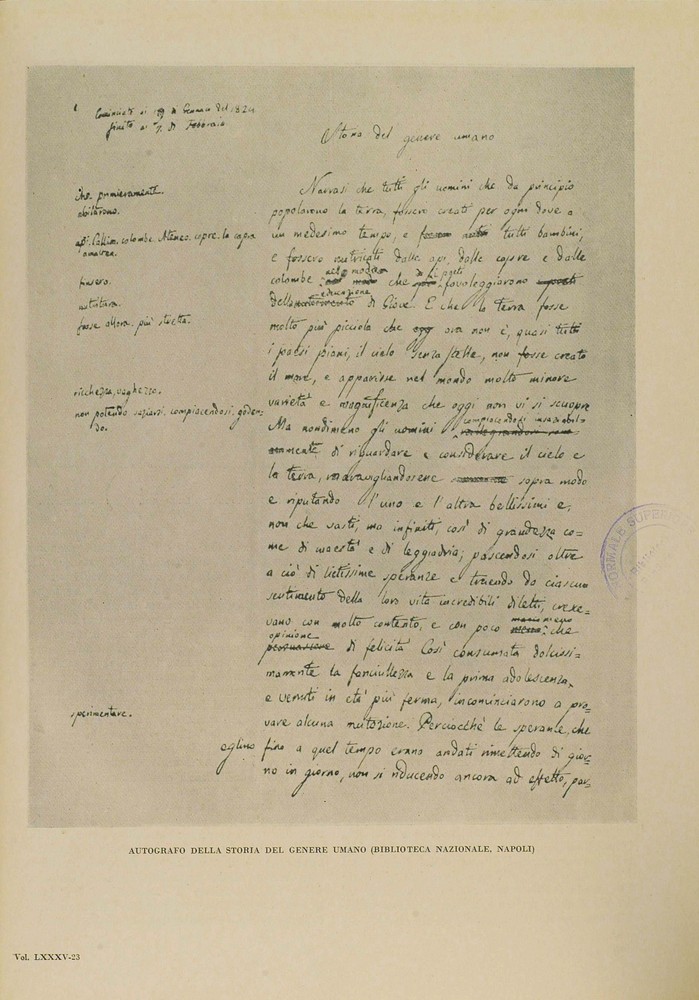 Cominciato ai 19 di Gennaio del 1824
finito ai 7. di Febbraio
Storia del genere umano
che primieramente.
abitarono.
api. Callim. colombe. Ateneo. capre. la capra
amaltea.
fussero.
nutritura.
fosse allora. più stretta.
ricchezza, vaghezza.
non potendo saziarsi, compiacendosi, goden-
do.
sperimentare.
Narrasi che tutti gli uomini che da principio
popolarono la terra, fossero creati per ogni dove a
un medesimo tempo, e tutti bambini;
e fossero nutricati dalle api, dalle capre e dalle
colombe nel modo che i poeti favoleggiarono
dell'educazione di Giove. E che la terra fosse
molto più piccola che ora non è, quasi tutti
i paesi piani, il cielo senza stelle, non fosse creato
il mare, e apparisse nel mondo molto minore
varietà e magnificenza che oggi non vi si scuopre
Ma nondimeno gli uomini compiacendosi insaziabil-
mente di riguardare e considerare il cielo e
la terra, maravigliandosene sopra modo
e riputando l'uno e l'altra bellissimi e,
non che vasti, ma infiniti, così di grandezza co-
me di maestà e di leggiadria; pascendosi oltre
a ciò di lietissime speranze e traendo da ciascun
sentimento della loro vita incredibili diletti, cresce-
vano con molto contento, e con poco meno che
opinione di felicità Così consumata dolcissi-
mamente la fanciullezza e la prima adolescenza,
e venuti in età più ferma, incominciarono a pro-
vare alcuna mutazione. Perciocchè le speranze, che
eglino fino a quel tempo erano andati rimettendo di gior-
no in giorno, non si riducendo ancora ad effetto, par-
NORMALE SUPER
AUTOGRAFO DELLA STORIA DEL GENERE UMANO (BIBLIOTECA NAZIONALE, NAPOLI)
Vol. LXXXV-23